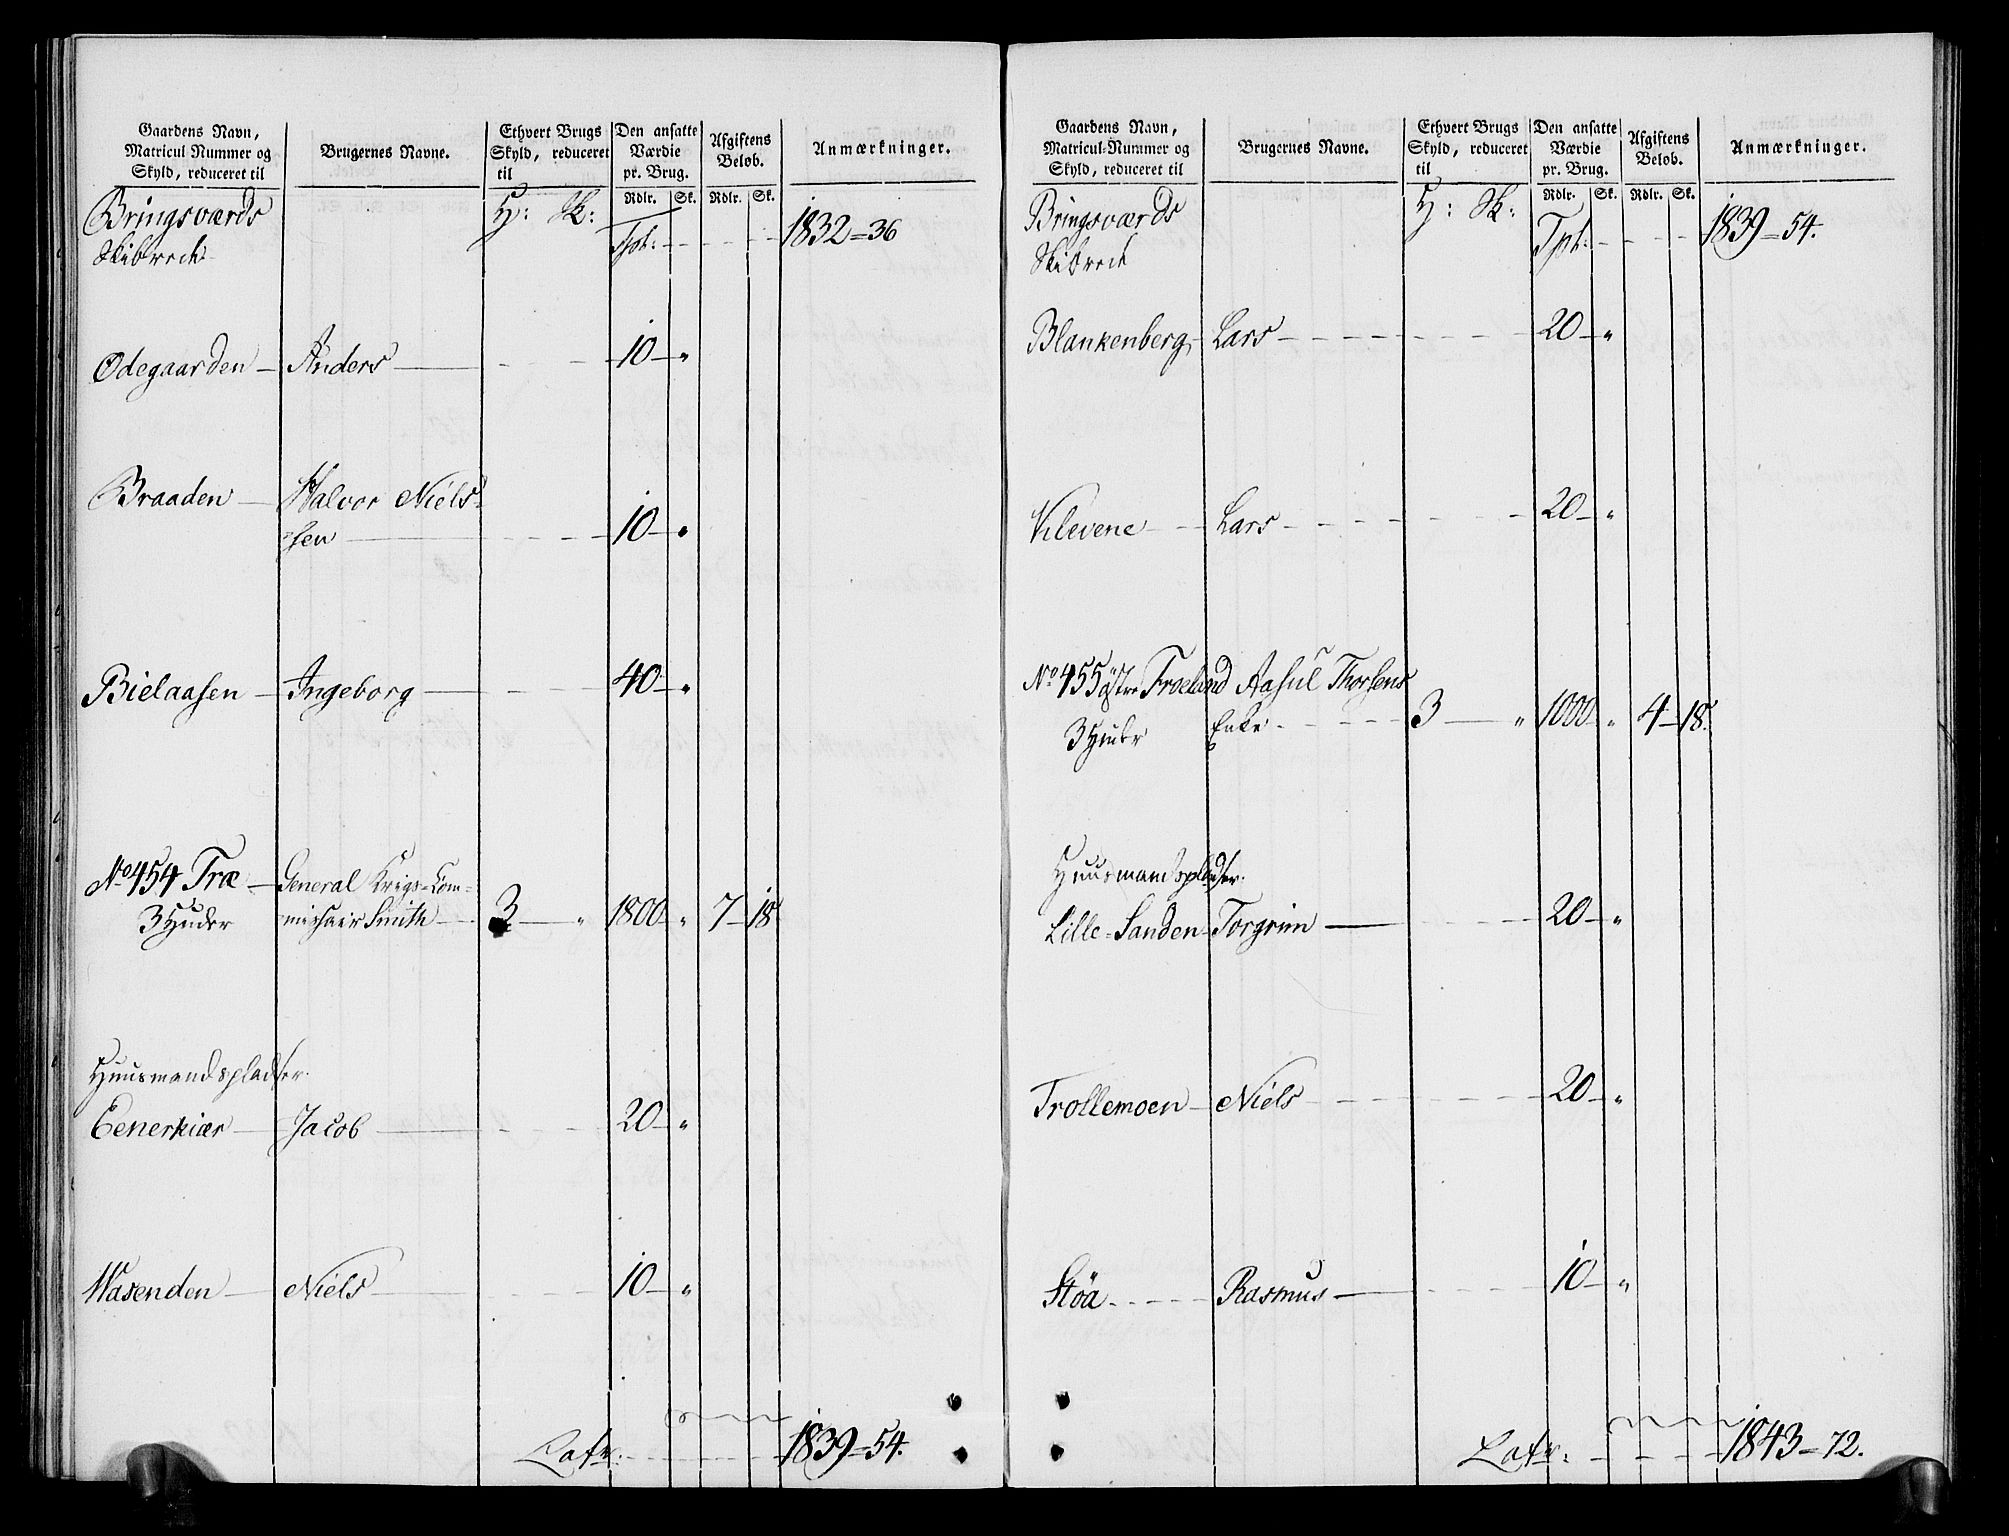 Gaardens Navn, Matricul Nummer og Skyld, reduceret til
Brugernes Navne.
Ethvert Brugs Skyld, reduceret til
Den ansatte Værdie pr. Brug.
Afgiftens Beløb.
Anmærkninger.
Rdlr. Sk. Rdlr. Sk.
Bringsværds H: Sk: Tpt: 1832 = 36
Skibrede
Odegaarden Anders 10 "
Braaden Halvor Niels-
sen 10 "
Bielaasen Ingeborg 40 "
No 454 Træ General Krigs-Com-
3 Huder missair Smith 3 " 1800 " 7 18
Huusmandspladser.
Eenerkiær Jacob 20 "
Wasenden Niels 10 "
Latr: 1839 = 54.
Gaardens Navn, Matricul-Nummer og Skyld, reduceret til
Brugernes Navne.
Ethvert Brugs Skyld, reduceret til
Den ansatte Værdie pr. Brug.
Afgiftens Beløb.
Anmærkninger.
Rdlr. Sk. Rdlr. Sk.
Bringsværds H: Sk: Tpt: 1839 = 54.
Skibrede
Blankenberg Lars 20 "
Klevene Lars 20 "
No 455 Östre Froeland Aasul Thorsens
3 Huder Enke 3 " 1000 " 4 18.
Huusmandspladser.
Lille-Sanden Torgrim 20 "
Trollemoen Niels 20 "
Stöa Rasmus 10 "
Latr: 1843 = 72.